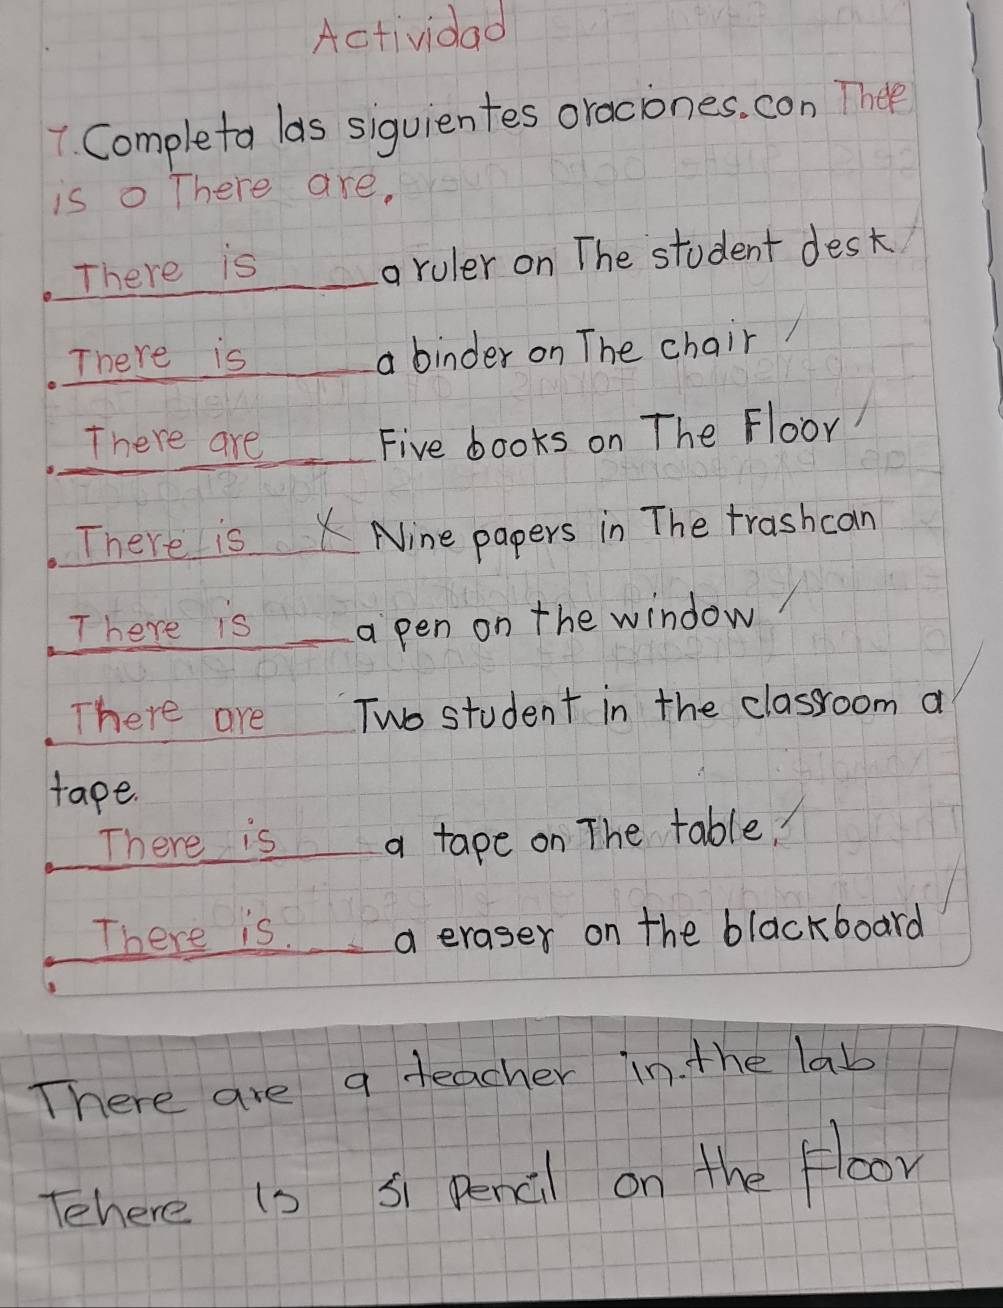 Actividad
7. Completa las siguientes oraciones. con Thee
is o There are.
. There is a ruler on The student desk /
. There is a binder on The chair /
. There are Five books on The Floor /
. There is X Nine papers in The trashcan
. There is a pen on the window /
. There are Two student in the classroom a /
tape.
. There is a tape on The table. /
. There is. a eraser on the blackboard /
There are a teacher in. the lab
Tehere is si pencil on the Floor